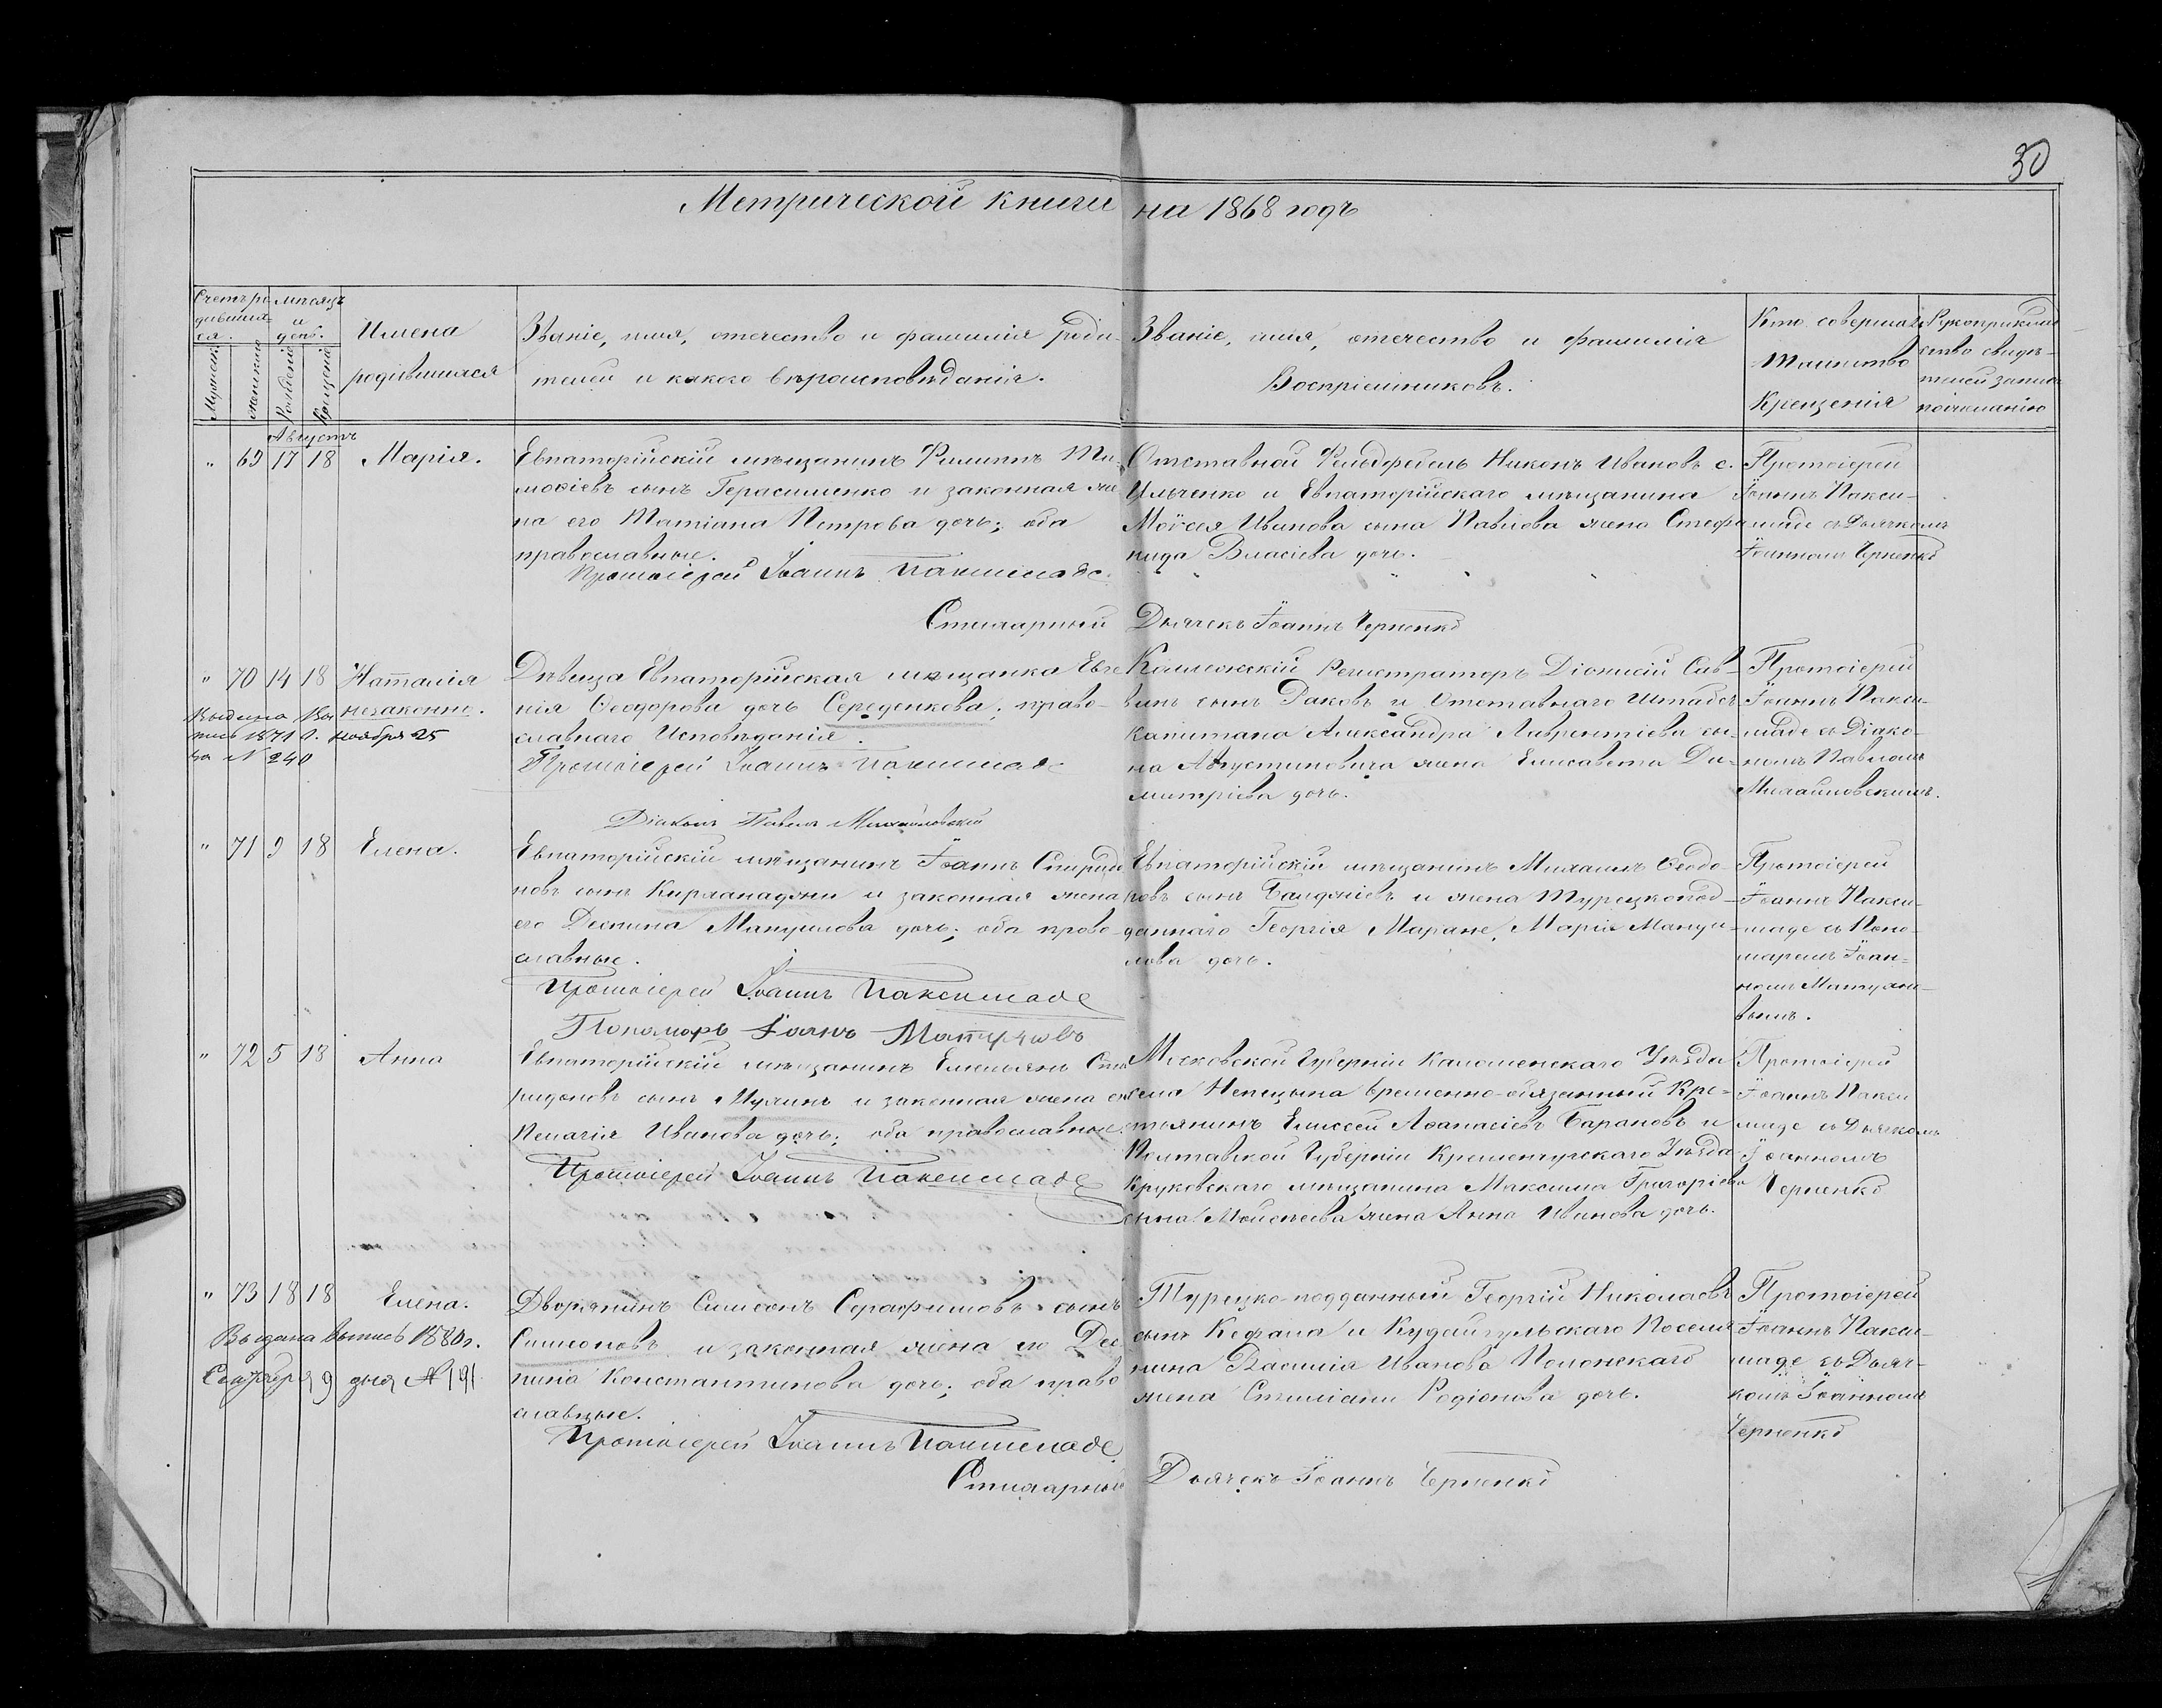 30
Метрической книги на 1868 годъ
Счетъ родившихся.
Мужеск.
Женскаго
мѣсяцъ и день.
Рожденія
Крещенія
Имена
родившихся
Званіе, имя, отечество и фамилія роди-
телей и какого вѣроисповѣданія.
Званіе, имя, отечество и фамилія
Воспріемниковъ.
Кто совершалъ
Таинство
Крещенія
Рукоприклад-
ство свидѣ-
телей записи
по желанію
Августъ
" 69 17 18 Марія.
Евпаторійскій мѣщанинъ Филиппъ Ти-
моѳіевъ сынъ Герасименко и законная же
на его Татіана Петрова дочь; оба
православные.
Протоіерей Іоаннъ Паксимаде
Отставной Фельдфебель Никонъ Ивановъ с.
Ильченко и Евпаторійскаго мѣщанина
Моѵсея Иванова сына Павлова жена Стефа
нида Власіева дочь.
Протоіерей
Іоаннъ Пакси-
маде съ Дьячкомъ
Іоанномъ Черненко
Стихарный Дьячекъ Іоаннъ Черненко
" 70 14 18 Наталія
незаконно.
Выдана Вы
пись 1871 г. Ноября 25
за N 240
Дѣвица Евпаторійская мѣщанка Евге
нія Ѳеодорова дочь Середенкова; право-
славнаго Исповѣданія.
Протоіерей Іоаннъ Паксимаде
Діаконъ Павелъ Михайловскій
Коллежскій Регистраторъ Діонисій Сав-
винъ сынъ Раковъ и Отставнаго Штабсъ
Капитана Александра Лаврентіева сы-
на Августиновича жена Елисавета Ди-
митріева дочь.
Протоіерей
Іоаннъ Пакси-
маде съ Діако-
номъ Павломъ
Михайловскимъ.
" 71 9 18 Елена.
Евпаторійскій мѣщанинъ Іоаннъ Спиридо
новъ сынъ Кирланаджи и законная жена
его Деспина Мануилова дочь; оба право-
славные.
Протоіерей Іоаннъ Паксимаде
Пономарь Іоанъ
Евпаторійскій мѣщанинъ Михаилъ Ѳеодо-
ровъ сынъ и жена Турецкопод-
даннаго Георгія Маране, Марія Мануи-
лова дочь.
Протоіерей
Іоаннъ Пакси-
маде съ Поно-
маремъ Іоан-
номъ
вымъ.
" 72 5 18 Анна
Евпаторійскій мѣщанинъ Емельянъ Спи
ридоновъ сынъ и законная жена его
Пелагія Иванова дочь; оба православные.
Протоіерей Іоаннъ Паксимаде
Московской Губерніи Каломенскаго Уѣзда
села Непецына временно-обязанный Кре-
стьянинъ Елиссей Аѳанасіевъ Барановъ и
Полтавской Губерніи Кременчугскаго Уѣзда
Круковскаго мѣщанина Максима Григоріева
сына Мойсѣева жена Анна Иванова дочь.
Протоіерей
Іоаннъ Пакси
маде съ Дьячкомъ
Іоанномъ
Черненко
" 73 18 18 Елена.
Выдана выпись 1880 г.
Сентября 9 дня N 191
Дворянинъ Симеонъ Серафимовъ сынъ
Симоновъ и законная жена его Дес
пина Константинова дочь; оба право
славные.
Протоіерей Іоаннъ Паксимаде
Турецко-подданный Георгій Николаевъ
сынъ Кефала и Кудайгульскаго Поселя
нина Василія Иванова Полонскаго
жена Стиліани Родіонова дочь.
Протоіерей
Іоаннъ Пакси-
маде съ Дьяч-
комъ Іоанномъ
Черненко
Стихарный Дьячекъ Іоаннъ Черненко